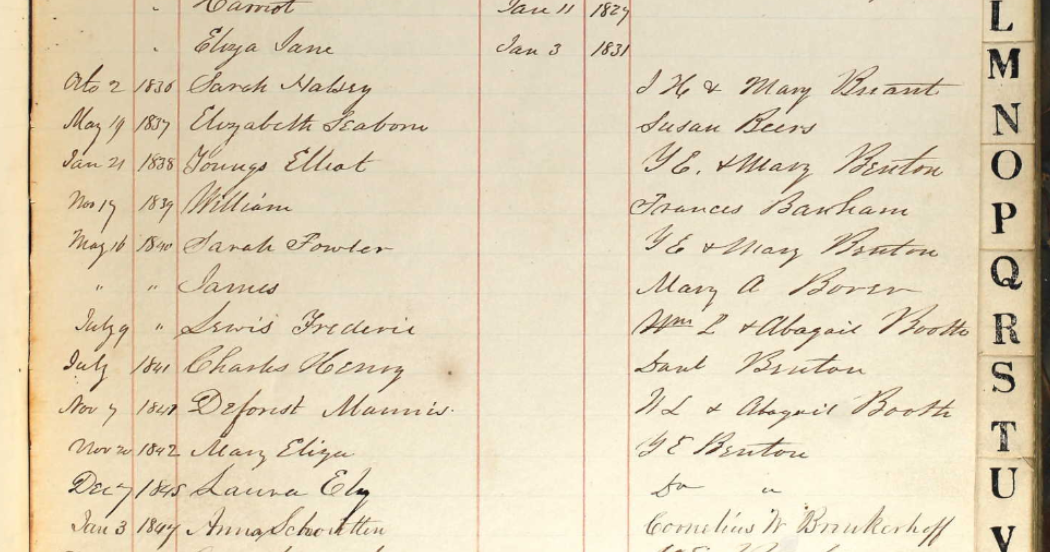 " Harriot Jan 11 1829
" Eliza Jane Jan 3 1831
Octo 2 1836 Sarah Halsey J H & Mary Breant
May 19 1837 Elizabeth Seaborn Susan Beers
Jan 21 1838 Youngs Elliot Y E. & Mary Benton
Nov 17 1839 William Frances Barham
May 16 1840 Sarah Fowler Y E & Mary Benton
" " James Mary A
July 9 " Lewis Frederic Wm L & Abagail Booth
July 1841 Charles Henry Danl Benton
Nov 7 Deforist W L & Abagail Booth
Nov 20 1842 Mary Eliza Y E Benton
Dec 7 1845 Laura Ely Do "
Jan 3 1847 Anna Schoutten Cornelius W Brinkerhoff
L
M
N
O
P
Q
R
S
T
U
V